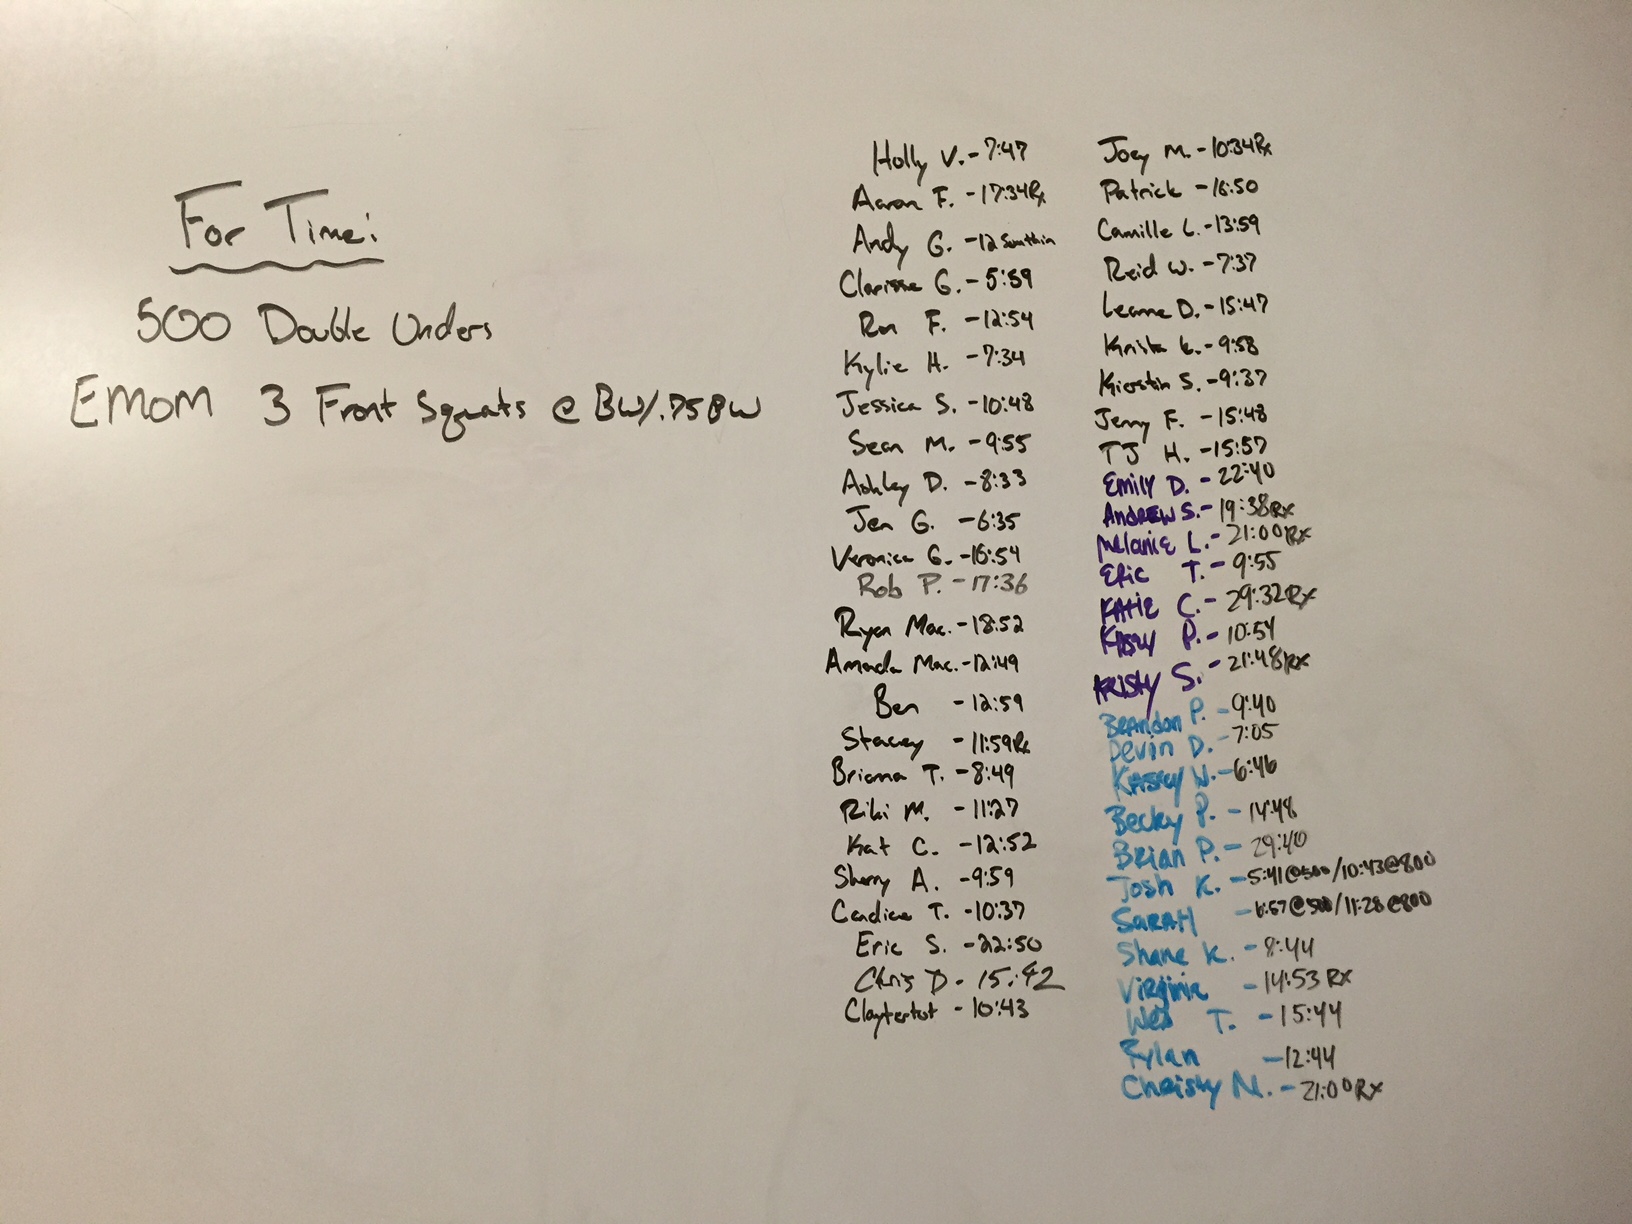 For Time:
500 Double Unders
EMOM 3 Front Squats @ BW/.75BW
Holly V. - 7:47
Aaron F. - 17:34Rx
Andy G. - 12 Sumthin
Clarissa G. - 5:59
Ron F. - 12:54
Kylie H. - 7:34
Jessica S. - 10:48
Sean M. - 9:55
Ashley D. - 8:33
Jen G. - 6:35
Veronica G. - 16:54
Rob P. - 17:36
Ryan Mac. - 18:52
Amanda Mac. - 12:49
Ben - 12:59
Stacey - 11:59Rx
Brianna T. - 8:49
Riki M. - 11:27
Kat C. - 12:52
Sherry A. - 9:59
Candice T. - 10:37
Eric S. - 22:50
Chris D. - 15:42
Claytertot - 10:43
Joey M. - 10:34Rx
Patrick - 16:50
Camille L. - 13:59
Reid W. - 7:37
Leanne D. - 15:47
Krista - 9:58
Kierstin S. - 9:37
Jenny F. - 15:48
TJ H. - 15:57
Emily D. - 22:40
Andrew S. - 19:38Rx
Melanie L. - 21:00Rx
Eric T. - 9:55
Katie C. - 29:32Rx
P. - 10:54
Kristy S. - 21:48Rx
Brandon P. - 9:40
Devin D. - 7:05
Kasey W. - 6:46
Becky P. - 14:48
Brian P. - 29:40
Josh K. - 5:41@500/10:43@800
Sarah - 6:57@500/11:28@800
Shane K. - 8:44
Virginia - 14:53 Rx
Wes T. - 15:44
Rylan - 12:44
Christy N. - 21:00Rx